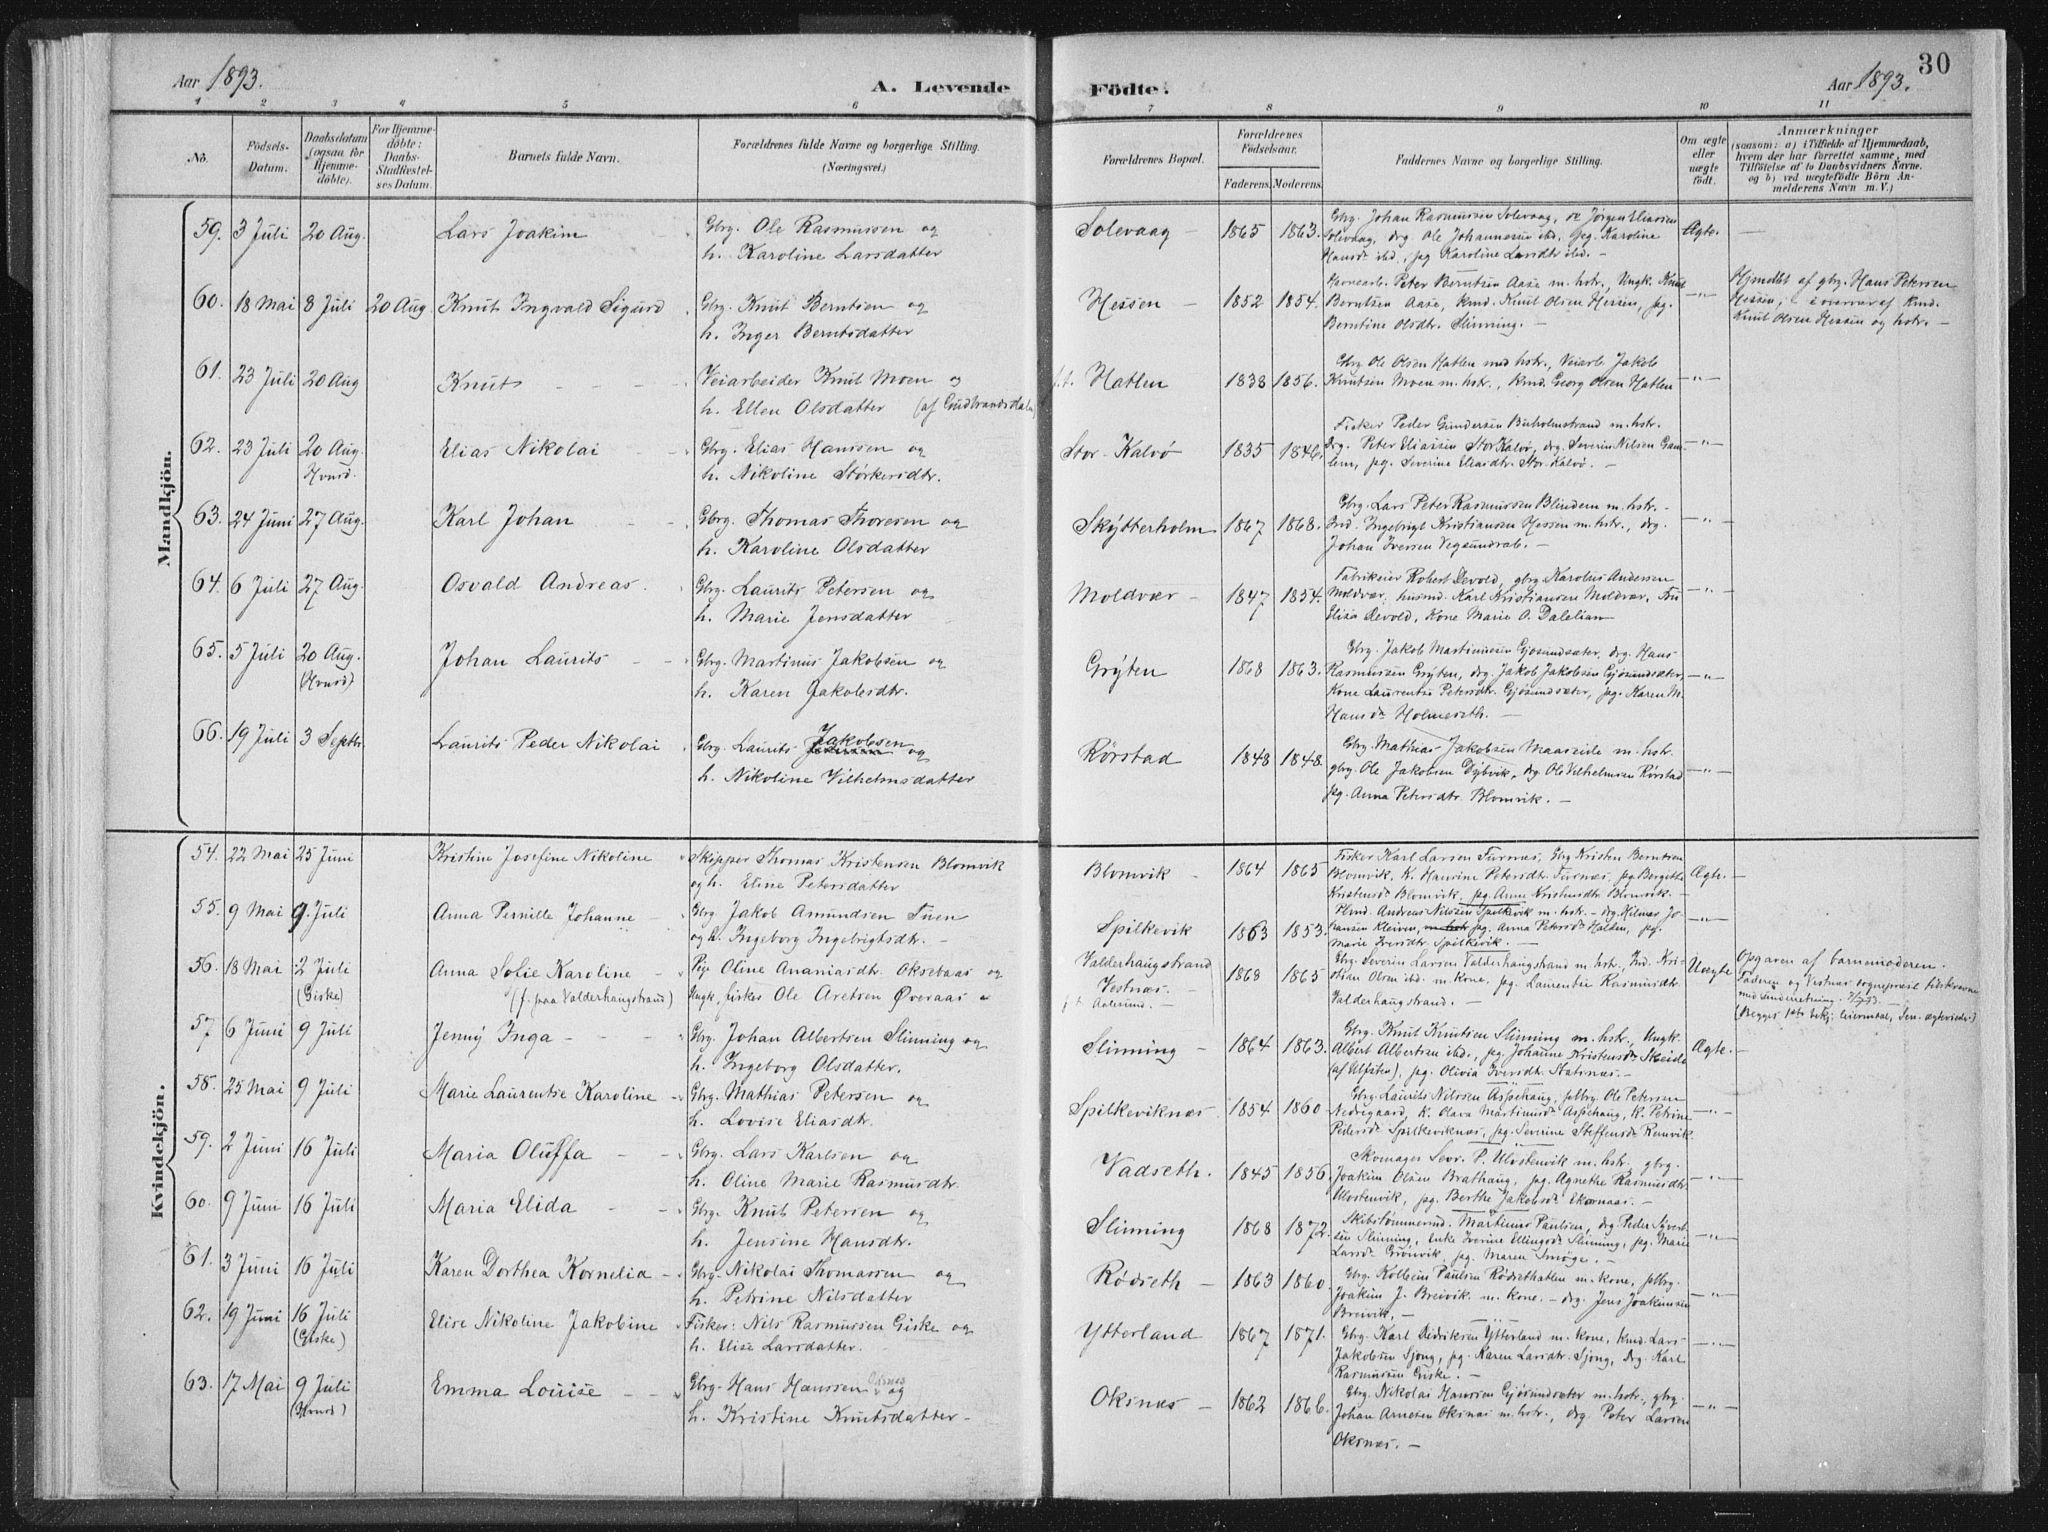 30
Aar 1893.
A. Levende
Födte.
Aar 1893.
1 2 3 4 5 6 7 8 9 10 11
No.
Födsels-
Datum.
Daabsdatum
(ogsaa for
Hjemme-
döbte).
For Hjemme-
döbte:
Daabs-
Stadfæstel-
ses Datum.
Barnets fulde Navn.
Forældrenes fulde Navne og borgerlige Stilling.
(Næringsvei.)
Forældrenes Bopæl.
Forældrenes
Födselsaar.
Faderens. Moderens.
Faddernes Navne og borgerlige Stilling.
Om ægte
eller
uægte
födt.
Anmærkninger
(saasom: a) i Tilfælde af Hjemmedaab,
hvem der har forrettet samme, med
Tilföielse af to Daabsvidners Navne.
og b) ved uægtefödte Börn An-
melderens Navn m. V.)
Mandkjön.
59. 3 Juli 20 Aug. Lars Joakim Gbrg. Ole Rasmussen og
h. Karoline Larsdatter
Solevaag 1865 1863.
Gbrg. Johan Rasmussen Solevaag, do Jørgen Eliassen
Solevaag, drg. Ole Johannessen ibd. pg. Karoline
Hansd. ibd., pg Karoline Larsdtr ibd. -
Ægte. -
60. 18 Mai 8 Juli 20 Aug. Knut Ingvald Sigurd Gbrg. Knut Berntsen og
h. Inger Berntsdatter
Hessen - 1852 1854.
Peter Berntsen Aase m. hstr., Ungk. Knut
Berntsen Aase, kmd. Knut Olsen Hessen, pg.
Berntine Olsdtr. Slinning. -
-"-
Hjmdbt af gbrg. Hans Petersen
Hessen, i overvær af kmd.
Knut Olsen Hessen og hstr. -
61. 23 Juli 20 Aug Knut - - - Veiarbeider Knut Moen og
h. Ellen Olsdatter (af Gudbrandsdalen)
f.t. Hatlen 1838 1856.
Gbrg Ole Olsen Hatlen med hstr., Veiarb. Jakob
Knutsen Moen m. hstr., kmd. Georg Olsen Hatlen
-"-
62. 23 Juli 20 Aug. Elias Nikolai Gbrg. Elias Hanssen og
Hvnsd. h. Nikoline Størkersdtr.
Stor-Kalvø 1835 1846.
Fisker Peder Gundersen Buholmstrand m. hstr.
Drg. Peter Eliassen Stor Kalvø, drg. Severin Nilsen Gam-
lem, pg. Severine Eliasdtr. Stor-Kalvø. -
-"-
63. 24 Juni 27 Aug. Karl Johan - - Gbrg. Thomas Thoresen og
h. Karoline Olsdatter
Skytterholm 1867 1868.
Gbrg. Lars Peter Rasmussen Blindem m. hstr. -
Ind. Ingebrigt Kristiansen Hessen m. hstr., drg.
Johan Iversen Vegsundrab. -
-"-
64. 6 Juli 27 Aug. Osvald Andreas. Gbrg. Laurits Petersen og
h. Marie Jensdatter
Moldvær - 1847 1854.
Fabrikeier Robert Devold, gbrg Karolus Andersen
Moldvær, husmd. Karl Kristiansen Moldvær. Fru
Elisa Devold, Kone Marie O. Dalelian
-"-
65. 5 Juli 20 Aug. Johan Laurits - - Gbrg. Martinus Jakobsen og
(Hvnsd) h. Karen Jakobsdtr.
Grÿten 1868 1863.
Gbrg. Jakob Martinussen Gjøsundsæter, drg. Hans
Rasmussen Grÿten, drg. Jakob Jakobsen Gjøsundsæter,
Kone Laurentse Petersdtr. Gjøsundsæter, pg. Karen M.
Hansdr Holmeseth. -
-"-
66. 19 Juli 3 Septbr. Laurits Peder Nikolai Gbrg. Laurits Jakobsen og
h. Nikoline Vilhelmsdatter
Rørstad 1848 1848.
Gbrg. Mathias Jakobsen Maaseide m. hstr.
gbrg. Ole Jakobsen Dybvik, drg. Ole Vilhelmsen Rørstad
pg. Anna Petersdtr. Blomvik. -
-"-
Kvindekjön.
54. 22 Mai 25 Juni Kristine Josefine Nikoline Skipper Thomas Kristensen Blomvik
og h. Eline Petersdatter
Blomvik - 1864 1865
Fisker Karl Larsen Furnæs, Gbrg Kristen Berntsen
Blomvik, K. Hansine Petersdtr. Furnæs, pg Bergithe
Kristensdr Blomvik, pg. Anne Kristensdtr Blomvik. -
Ægte. -
55. 9 Mai 9 Juli Anna Pernille Johanne - Gbrg Jakob Amundsen Tuen
og h. Ingeborg Ingebrigtsdtr. -
Spilkevik 1863 1853.
Hmd. Andreas Nilssen Spilkevik m. hstr. - drg. Hilmar Jo-
hansen Kleiven, pg. Anna Petersdr Halden, pg.
Marie Iversdtr. Spilkevik. -
-"-
56. 18 Mai 2 Juli Anna Sofie Karoline - Pige Oline Ananiasdtr. Oksebaas og
(Giske) (f. paa Valderhaugstrand) Ungk, fisker Ole Aretsen Øveraas -
Valderhaugstrand
Vestnæs. -
f.t. Aalesund.
1868 1865
Gbrg. Severin Larsen Valderhaugstrand m. hstr. Ind. Kri-
stian Olsen ibd. m. Kone, pg. Laurentse Rasmusdtr.
Valderhaugstrand. -
Uægte
Opgaven af barnemoderen.
Faderen og Vestnæs sognepræst tilskrevne
med underretning.
57. 6 Juni 9 Juli Jenny Inga - - - Gbrg. Johan Albertsen Slinning og
h. Ingeborg Olsdatter.
Slinning - 1864 1863.
Gbrg. Knut Knutsen Slinning m. hstr., Ungk.
Albert Albertsen ibd., pg. Johanne Kristensdr Skeide
(af Ulfsten), pg. Olivia Iversdtr. Slatnæs. -
Ægte. -
58. 25 Mai 9 Juli Marie Laurentse Karoline - Gbrg. Mathias Petersen og
h. Lovise Eliasdtr.
Spilkeviknæs 1854 1860
Gbrg. Laurits Nilsen Aspehaug, Ole Petersen
Nedregaard, K. Olava Martinusdr Aspehaug, K. Petrine
Pedersdr Spilkeviknæs, pg. Severine Steffensdr Remvik.
-"-
59. 2 Juni 16 Juli Maria Oluffa - - Gbrg. Lars Karlsen og
h. Oline Marie Rasmusdtr.
Vadseth. 1845 1856.
Skomager Sevr. P. Ulvstenvik m. hstr., gbrg.
Joakim Olsen Brathaug, pg. Agnethe Rasmusdtr.
Ulvstenvik, pg. Berthe Jakobsdr Ekornaas. -
-"-
60. 9 Juni 16 Juli Maria Elida - - Gbrg. Knut Petersen og
h. Jensine Hansdtr.
Slinning 1868 1872.
Skibstømmermd. Martinus Paulsen, drg. Peder Sivert-
sen Slinning, enke Iverine Ellingsdr Slinning, pg. Marie
Larsdr Grönvik, pg. Maren Smöge. -
-"-
61. 3 Juni 16 Juli Karen Dorthea Kornelia - Gbrg. Nikolai Thomassen og
h. Petrine Nilsdatter
Rødseth - 1863 1860.
Gbrg. Kolbein Paulsen Rødsethatlen m. kone,
Joakim J. Breivik m. kone. - drg. Jens Joakimsen
Breivik. -
-"-
62. 19 Juni 16 Juli Elise Nikoline Jakobine Fisker: Nils Rasmussen Giske og
(Giske) h. Elise Larsdatter.
Ytterland 1867 1871.
Gbrg. Karl Didriksen Ytterland m. kone, kmd. Lars
Jakobsen Sjong, pg. Karen Larsdtr. Sjong, drg. Karl
Rasmussen Giske. -
-"-
63. 17 Mai 9 Juli Emma Louise - - Gbrg. Hans Hanssen og
(Hvnsd) h. Kristine Knutsdatter -
Oksnæs - 1862 1866.
Gbrg. Nikolai Hanssen Gjøsundsæter m. hstr., gbrg.
Johan Arnesen Oksnæs m. hstr., drg Peter Larsen
Oksnæs. -
-"-